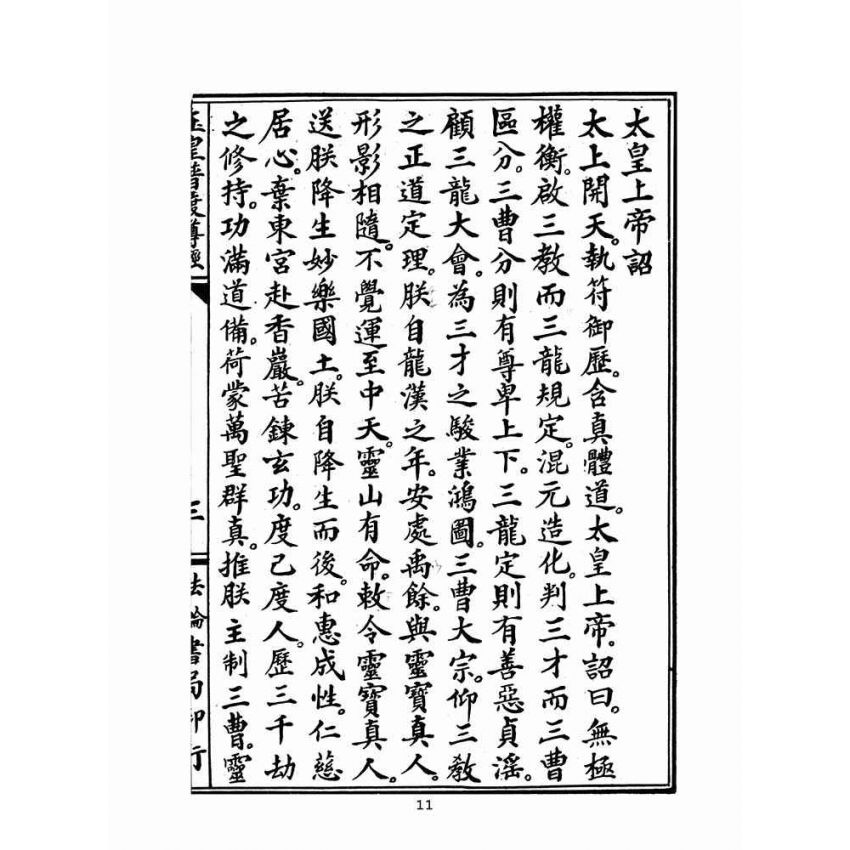 太皇上帝詔
太上開天。執符御歷。含真體道。太皇上帝。詔曰。無極
權衡。啟三教而三龍規定。混元造化。判三才而三曹
區分。三曹分則有尊卑上下。三龍定則有善惡貞淫。
顧三龍大會。為三才之駿業鴻圖。三曹大宗。仰三教
之正道定理。朕自龍漢之年。安處禹餘。與靈寶真人。
形影相隨。不覺運至中天。靈山有命。敕令靈寶真人。
送朕降生妙樂國土。朕自降生而後。和惠成性。仁慈
居心。棄東宮赴香巖。苦鍊玄功。度己度人。歷三千劫
之修持。功滿道備。荷蒙萬聖群真。推朕主制三曹。靈
玉皇普度尊經
三
法輪書局印行
11